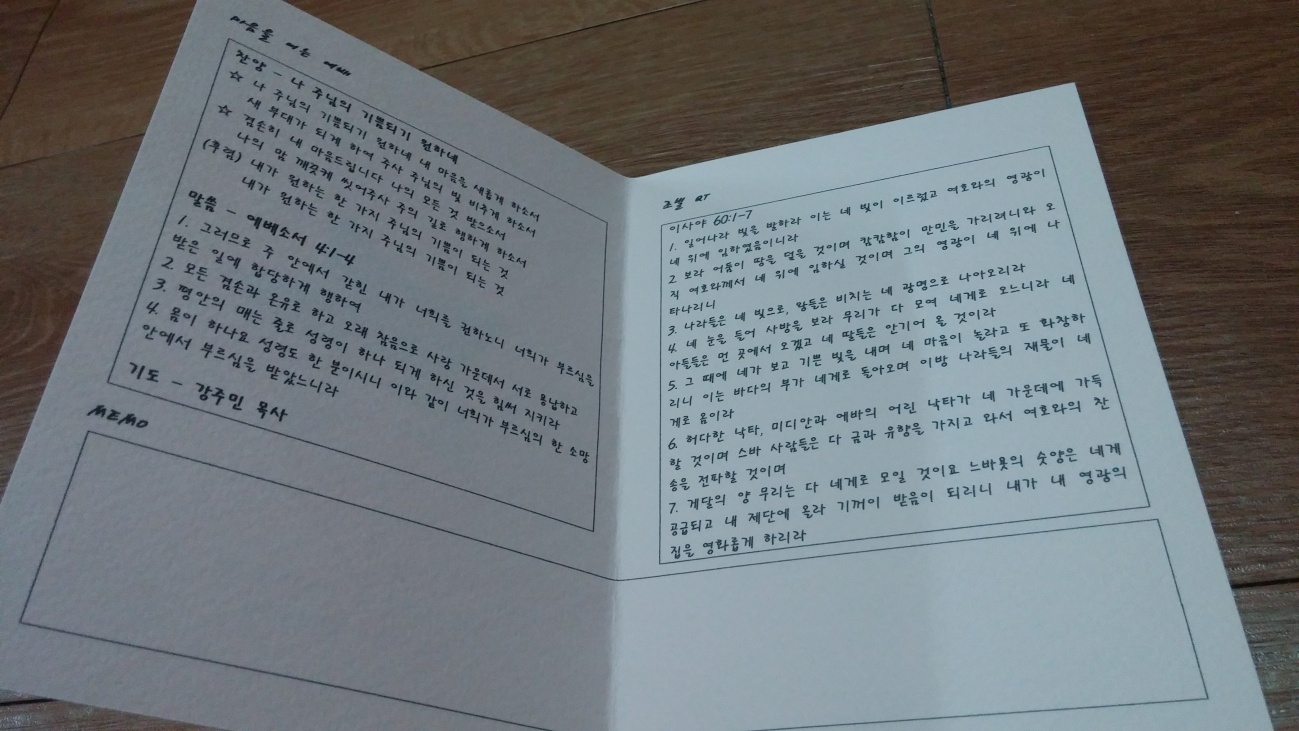 마음을 여는 예배
찬양 - 나 주님의 기쁨되기 원하네
☆ 나 주님의 기쁨되기 원하네 내 마음을 새롭게 하소서
새 부대가 되게 하여 주사 주님의 빛 비추게 하소서
☆ 겸손히 내 마음드립니다 나의 모든 것 받으소서
나의 맘 깨끗케 씻어주사 주의 길로 행하게 하소서
(후렴) 내가 원하는 한 가지 주님의 기쁨이 되는 것
내가 원하는 한 가지 주님의 기쁨이 되는 것
말씀 - 에베소서 4:1-4
1. 그러므로 주 안에서 갇힌 내가 너희를 권하노니 너희가 부르심을
받은 일에 합당하게 행하여
2. 모든 겸손과 온유로 하고 오래 참음으로 사랑 가운데서 서로 용납하고
3. 평안의 매는 줄로 성령이 하나 되게 하신 것을 힘써 지키라
4. 몸이 하나요 성령도 한 분이시니 이와 같이 너희가 부르심의 한 소망
안에서 부르심을 받았느니라
기도 - 강주민 목사
MEMO
조별 QT
이사야 60:1-7
1. 일어나라 빛을 발하라 이는 네 빛이 이르렀고 여호와의 영광이
네 위에 임하였음이니라
2. 보라 어둠이 땅을 덮을 것이며 캄캄함이 만민을 가리려니와 오
직 여호와께서 네 위에 임하실 것이며 그의 영광이 네 위에 나
타나리니
3. 나라들은 네 빛으로, 왕들은 비치는 네 광명으로 나아오리라
4. 네 눈을 들어 사방을 보라 무리가 다 모여 네게로 오느니라 네
아들들은 먼 곳에서 오겠고 네 딸들은 안기어 올 것이라
5. 그 때에 네가 보고 기쁜 빛을 내며 네 마음이 놀라고 또 화창하
리니 이는 바다의 부가 네게로 돌아오며 이방 나라들의 재물이 네
게로 옴이라
6. 허다한 낙타, 미디안과 에바의 어린 낙타가 네 가운데에 가득
할 것이며 스바 사람들은 다 금과 유향을 가지고 와서 여호와의 찬
송을 전파할 것이며
7. 게달의 양 무리는 다 네게로 모일 것이요 느바욧의 숫양은 네게
공급되고 내 제단에 올라 기꺼이 받음이 되리니 내가 내 영광의
집을 영화롭게 하리라